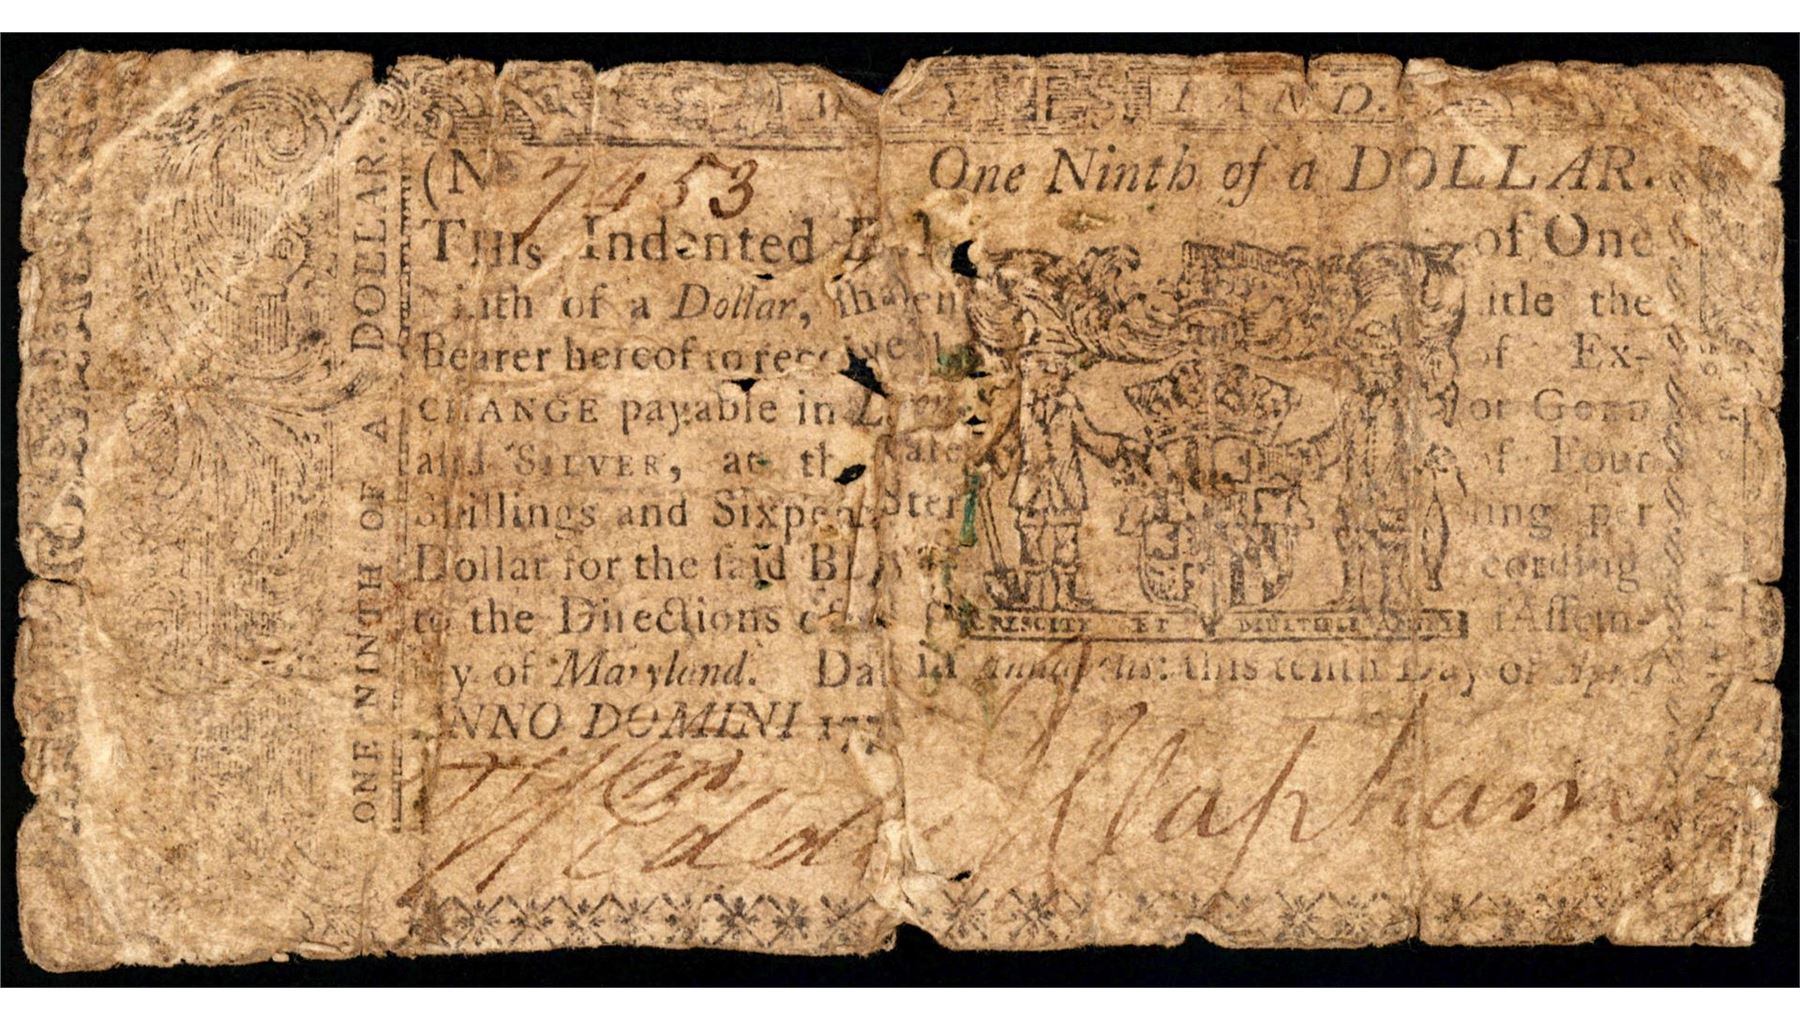 LAND.
ONE NINTH OF A DOLLAR.
(No 7453 One Ninth of a DOLLAR.
THIS Indented of One
of a Dollar, shall en itle the
Bearer hereof to receive of Ex-
CHANGE payable in or GOLD
and SILVER, at the Rate of Four
Shillings and Sixpence Ster ling per
Dollar for the said according
to the Directions of Assem-
of Maryland. Dated in Annapolis: this tenth Day of April
ANNO DOMINI 177
CRESCITE ET MULTIPLICAMINI
Clapham